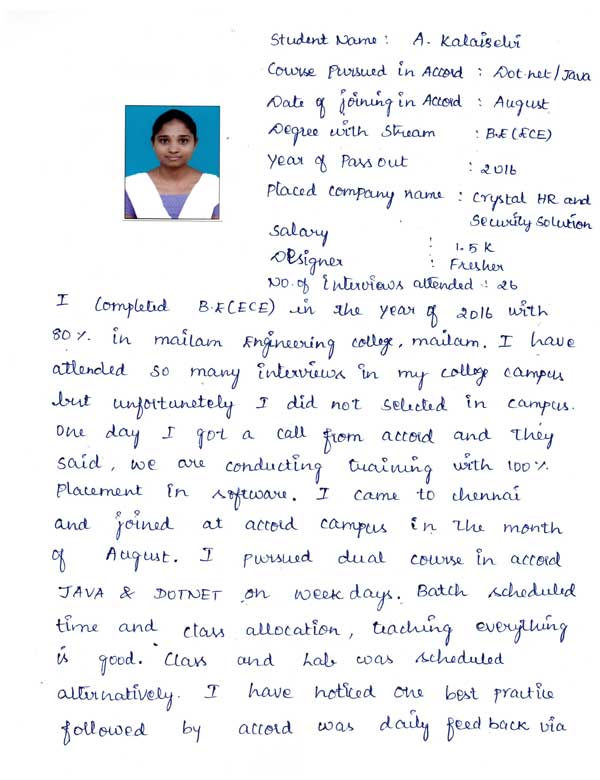 Student Name : A. Kalaiselvi
Course Pursued in Accord : Dot.net/Java
Date of joining in Accord : August
Degree with Stream : B.E (ECE)
Year of Pass out : 2016
Placed company name : Crystal HR and
Security Solution
Salary : 1.5 K
Designer : Fresher
No. of Interviows attended : 26
I completed B.E(ECE) in the year of 2016 with
80 % in mailam Engineering college, mailam. I have
attended so many interviews in my college campus
but unfortunetely I did not selected in campus.
One day I got a call from accord and they
said, we are conducting training with 100 %
Placement in software. I came to chennai
and joined at accord campus in the month
of August. I pursued dual course in accord
JAVA & DOTNET on week days. Batch scheduled
time and class allocation, teaching everything
is good. Class and Lab was scheduled
alternatively. I have noticed one best practice
followed by accord was daily feed back via